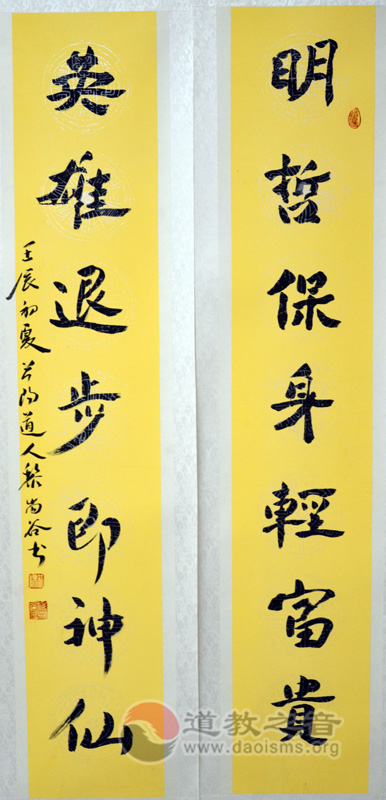 明哲保身輕富貴
英雄退步即神仙
壬辰初夏 道人黎尚谷书
道教之音
www.daoisms.org